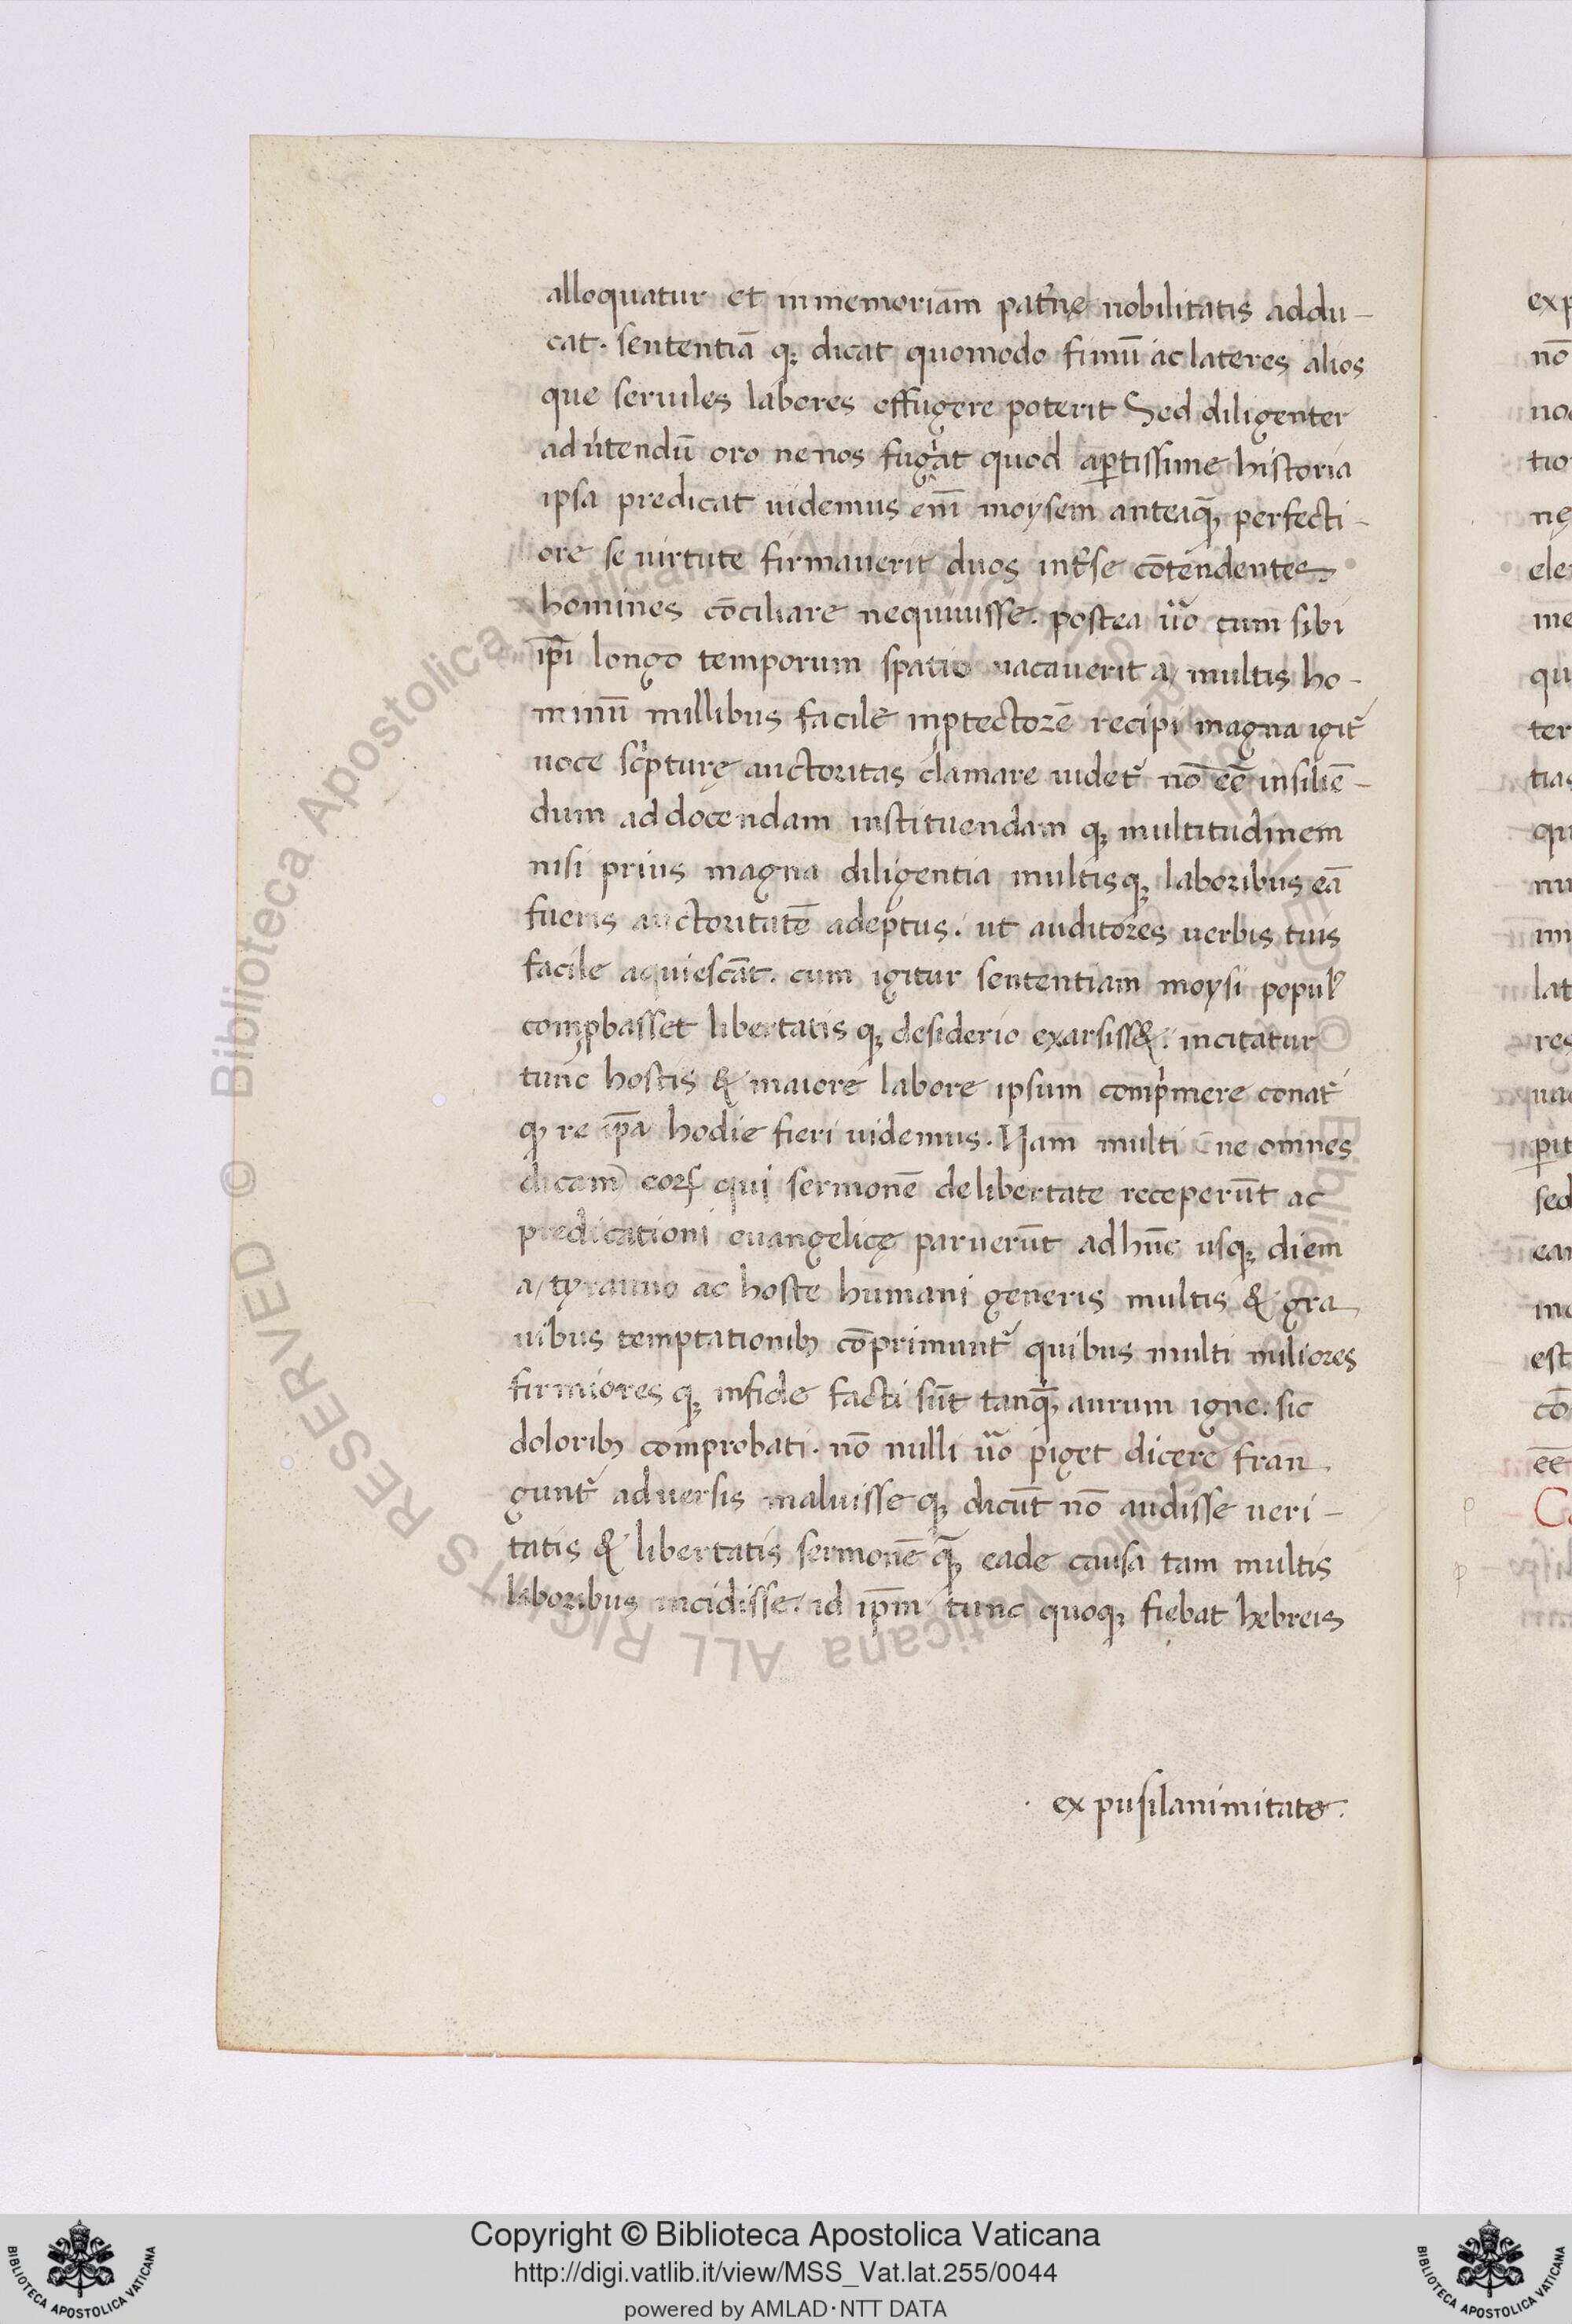 alloquatur et in memoriam pat̃nę nobilitatis addu-
cat. sententiā qꝫ dicat quomodo fimū ac lateres alios
que seruiles labores effugere poterit Sed diligenter
aduͥtendū oro ne nos fugͥat quod aꝑtissime historia
ipsa predicat uidemus em̄ moysem anteaqꝫ̄ perfecti-
ore se uirtute firmauerit duos int̃se cōtendentes
homines cōciliare nequiuisse. postea ũo cum sibi
ip̄i longo temporum spatio uacauerit a/ multis ho-
minū millibus facile inꝓtectorē recipi magna igit̃
uoce scͥpturę auctoritas clamare uidet̃ nō eē̄ insiliē-
dum ad docendam instituendam qꝫ multitudinem
nisi prius magna diligentia multisqꝫ laboribus eā
fueris auctoritatē adeptus. ut auditores uerbis tuis
facile aquiescāt. cum igitur sententiam moysi populꝰ
comꝓbasset libertatis qꝫ desiderio exarsiss&. incitatur
tunc hostis & maiore labore ipsum compͥmere conat̃
qꝫ re ip̄a hodie fieri uidemus. Nam multi ēne omnes
dicam̃ eoꝝ qui sermonē de libertate receperūt ac
predicationi euangelicę paruerūt ad hūc usqꝫ diem
a/ tyranno ac hoste humani generis multis & gra
uibus temptationibꝫ cōprimunt̃ quibus multi miliores
firmiores qꝫ in fide facti sūt tanqꝫ̄ aurum igne. sic
doloribꝫ comprobati. nō nulli ũo piget dicere fran
gunt̃ aduersis maluisse qꝫ dicūt nō audisse ueri-
tatis & libertatis sermonē qꝫ̄ eade causa tam multis
laboribus incidisse. id ip̄m tunc quoqꝫ fiebat hebreis
ex pusilanimitate.
exp
nō
noc
tio
nę
ele
me
qu
ter
tias
qu
nu
im
lat
res
ua
ꝑit
sed
ear
mo
est
cō
eē
C
Copyright © Biblioteca Apostolica Vaticana
http://digi.vatlib.it/view/MSS_Vat.lat.255/0044
powered by AMLAD·NTT DATA
BIBLIOTECA APOSTOLICA VATICANA
BIBLIOTECA APOSTOLICA VATICANA